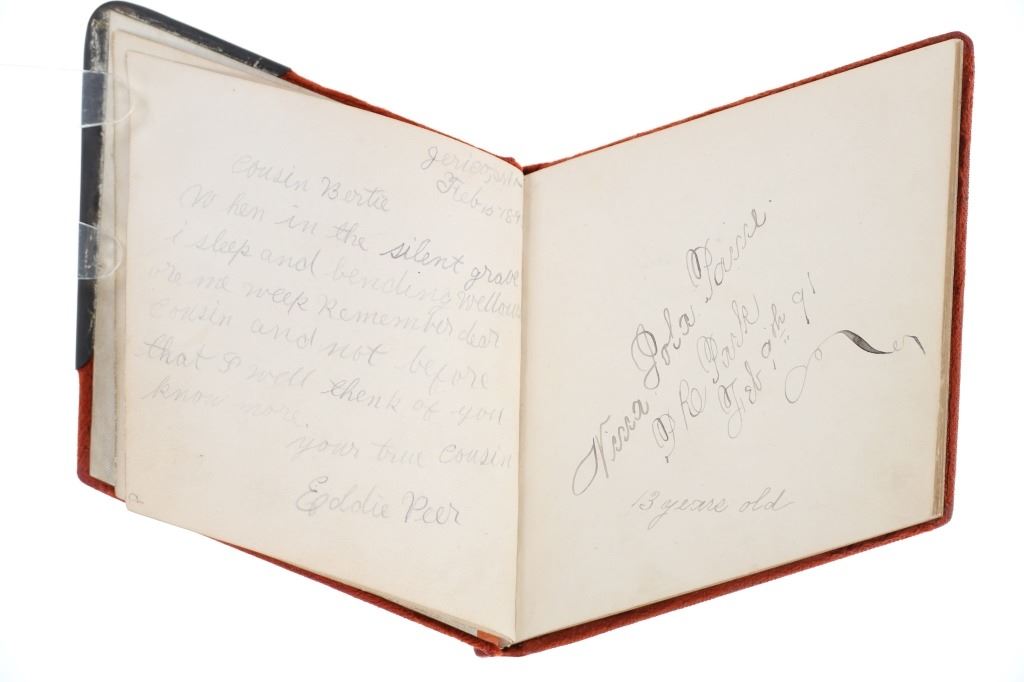 Jerico,
Feb 10 189
Cousin Bertie
When in the silent grave
i sleep and bending wellows
ore me week Remember dear
Cousin and not before
that I well thenk of you
know more.
your true Cousin
Eddie Peer
Nina Iola Paine.
Park
Feb 9th 91
13 years old